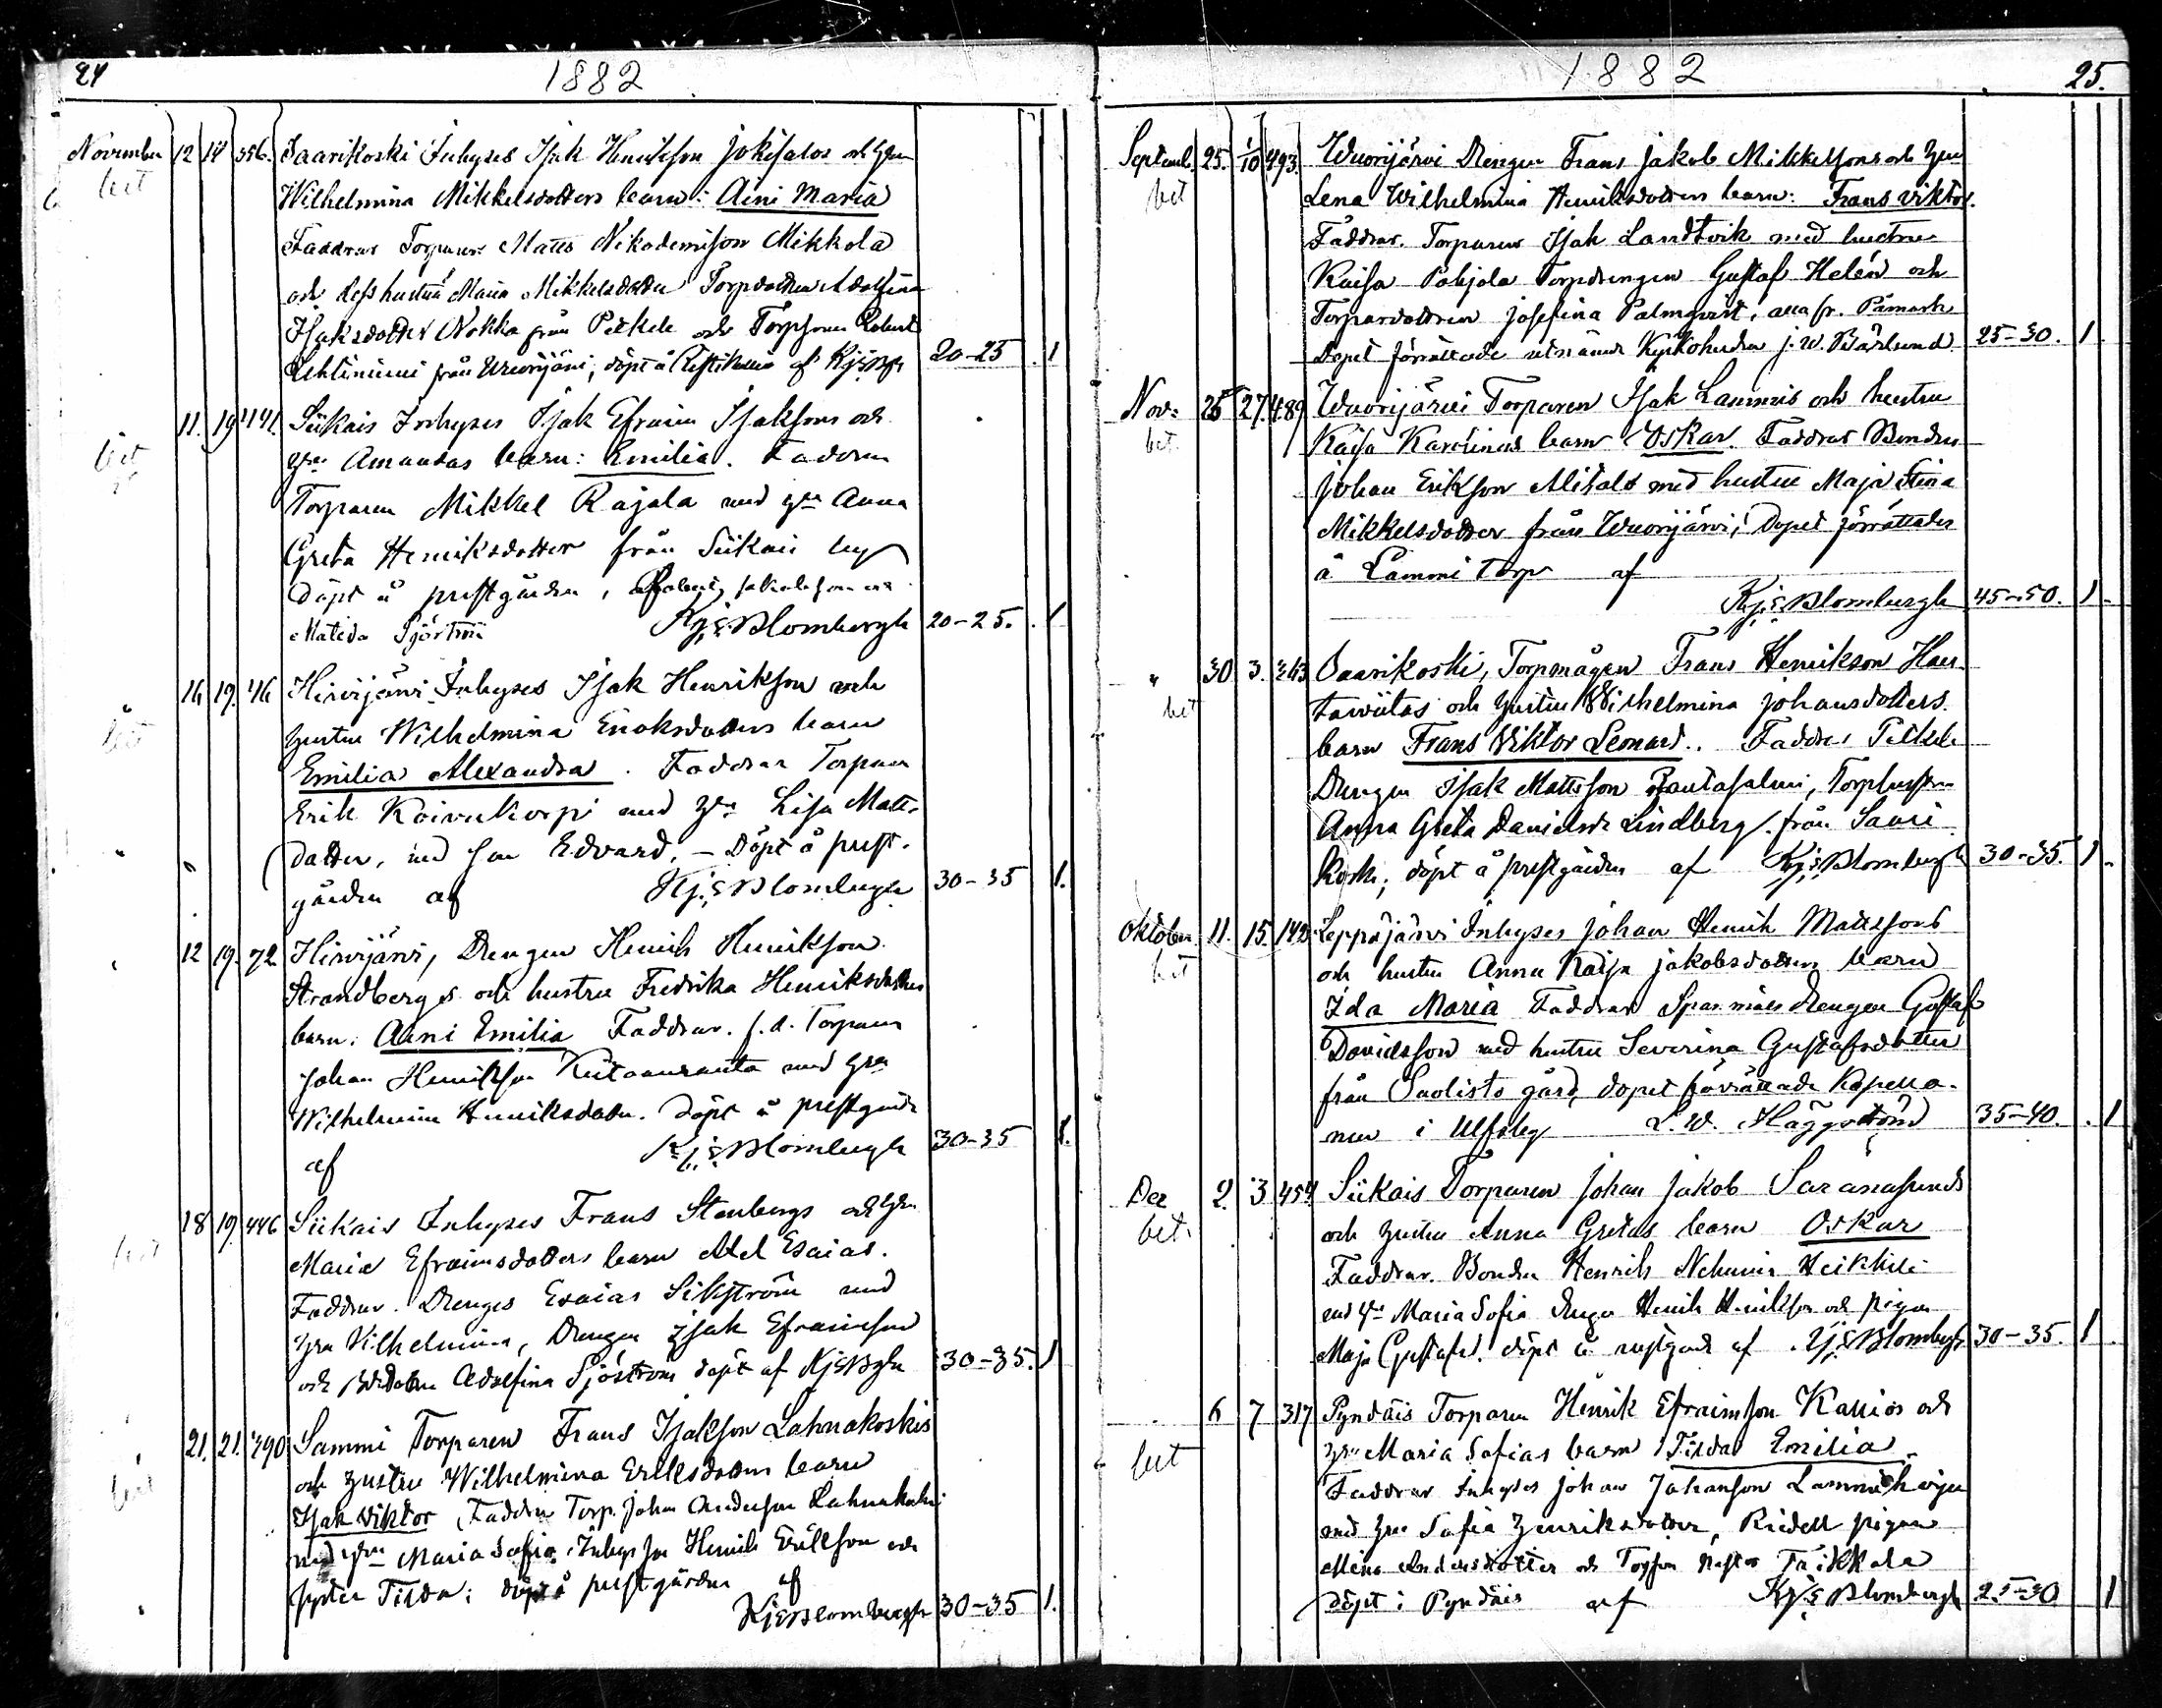 24
1882
November 12 14 356. Saarikoski Inhyses Isak Henrikson Jokisalos och hru
bet Wilhelmina Mikkelsdotters barn: Aini Maria
Faddrar Torparen Matts Nikodemisson Mikkola
och dess hustru Maria Mikkelsdotter Torpdottren Adolfina
Isaksdotter Nokka från Petkele och Torpsonen Robert
Lehtiniemi från Wuorijärvi, döpt å af KjEBgh 20-25 1
11. 19 441. Siikais Inhyses Isak Efraim Isaksons och
bet hru Amandas barn: Emilia. Faddrar
Torparen Mikkel Rajala med hru Anna
Greta Henriksdotter från Siikais by
Döpt å prestgården,
Matilda Sjöström KjEBlombergh 20-25. 1
16 19. 46 Hirvijärvi Inhyses Isak Henrikson och
bet hustru Wilhelmina Enoksdotters barn
Emilia Alexandra. Faddrar Torparen
Erik Koivukorpi med hru Lisa Matts
dotter, med son Edvard. – Döpt å prest-
gården af KjEBlombergh 30-35 1.
12 19. 72 Hirvijärvi, Drengen Henrik Henrikson
Strandbergs och hustru Fredrika Henriksdotters
barn: Aini Emilia Faddrar. f.d. Torparen
Johan Henrikson med hru
Wilhelmina Henriksdotter. Döpt å prestgården
af KjEBlombergh 30-35 1.
18 19. 446 Siikais Inhyses Frans Stenbergs och hru
bet Maria Efraimsdotters barn Axel Esaias.
Faddrar. Drengen Esaias Sikström med
hru Vilhelmina, Drengen Isak Efraimson
och Adolfina Sjöström döpt af KjEBgh 30-35. 1
21. 21. 390 Sammi Torparen Frans Isakson Lahnakoskis
bet och hustru Wilhelmina Eriksdotters barn
Isak Viktor Faddrar Torp. Johan Anderson Lahnakoski
med hru Maria Sofia, Inhys son Henrik Erikson och
syster Tilda; döpt å prestgården af
KjEBlombergh 30-35 1.
1882
25.
Septemb. 25. 1/10 493. Wuorijärvi Drengen Frans Jakob Mikkelsons och hru
bet Lena Wilhelmina Henriksdotters barn: Frans Viktor.
Faddrar. Torparen Isak Landtvik med hustru
Kaisa Pohjola Torpdrengen Gustaf Helén och
Torpardottren Josefina Palmqvist, alla fr. Påmark
Dopet förrättade nämde Kyrkoherden J.W. Bärlund. 25-30. 1
Nov. 25 27. 489 Wuorijärvi Torparen Isak Lammis och hustru
bet. Kaisa Karolinas barn Oskar. Faddrar Bonden
Johan Erikson Alitalo med hustru Maja Stina
Mikkelsdotter från Wuorijärvi; Dopet förrättades
å Lammi torp af
KjEBlombergh 45-50. 1.
" 30 3. 363 Saarikoski, Torpmågen Frans Henrikson Hau-
bet taviitas och hustru Wilhelmina Johansdotters
barn Frans Viktor Leonard. Faddrar Petkele
Drengen Isak Mattsson Rautasalmi, Torphustrun
Anna Greta Davidsdr Lindberg från Saari
koski; döpt å prestgården af KjEBlombergh 30-35. 1.
Oktober 11. 15. 142 Leppäjärvi Inhyses Johan Henrik Mattssons
bet och hustru Anna Kaisa Jakobsdotters barn
Ida Maria Faddrar Drengen Gustaf
Davidsson med hustru Severina Gustafsdotter
från gård, dopet förrättade Kapella-
nen i Ulfsby L.W. Häggström 35-40. 1
Dec 2. 3 454. Siikais Torparen Johan Jakob
bet. och hustru Anna Gretas barn Oskar
Faddrar. Bonden Henrik Nehemia Heikkilä
med hru Maria Sofia Drengen Henrik Henrikson och pigan
Maja Gustafsd. döpt å prestgård af KjEBlombergh 30-35. 1
6 7 317 Pyndäis Torparen Henrik Efraimson Kallios och
bet hru Maria Sofias barn Tilda Emilia.
Faddrar Inhyses Johan Johanson
med hru Sofia Henriksdotter, Riddell pigan
Mina Andersdotter och Torpson Nestor Trikkala
Döpt i Pyndäis af KjEBlombergh 25-30 1